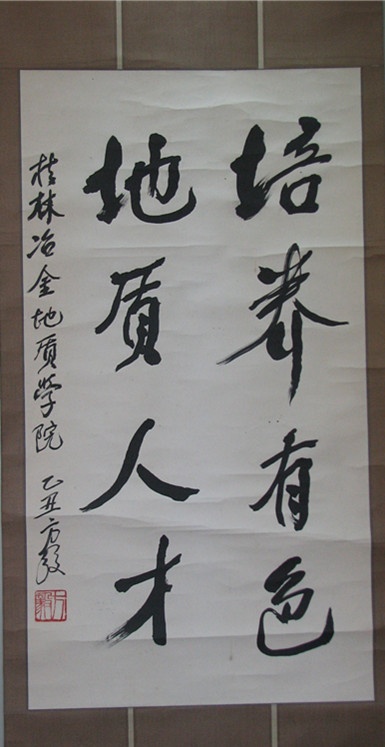 培养有色
地质人才
桂林冶金地质学院 乙丑 方毅
方毅